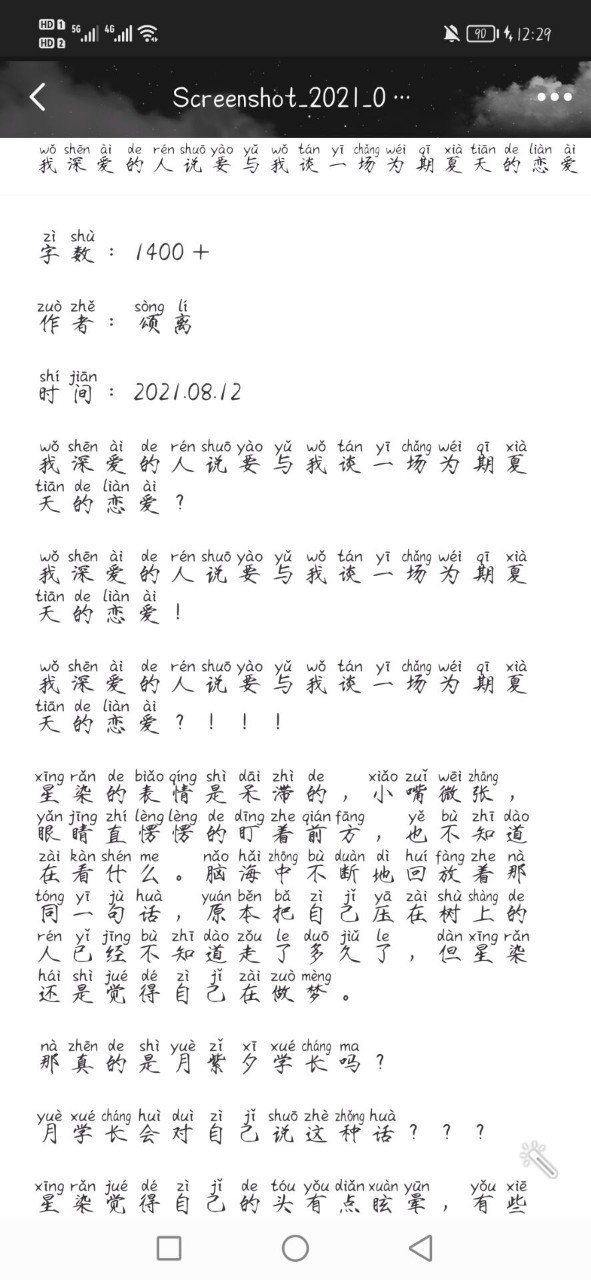 HD 1 5G 4G 90 12:29
HD 2
Screenshot_2021_0 ···
wǒ shēn ài de rén shuō yào yǔ wǒ tán yī chǎng wéi qī xià tiān de liàn ài
我深爱的人说要与我谈一场为期夏天的恋爱
zì shù
字数：1400+
zuò zhě sòng lí
作者：颂离
shí jiān
时间：2021.08.12
wǒ shēn ài de rén shuō yào yǔ wǒ tán yī chǎng wéi qī xià
我深爱的人说要与我谈一场为期夏
tiān de liàn ài
天的恋爱？
wǒ shēn ài de rén shuō yào yǔ wǒ tán yī chǎng wéi qī xià
我深爱的人说要与我谈一场为期夏
tiān de liàn ài
天的恋爱！
wǒ shēn ài de rén shuō yào yǔ wǒ tán yī chǎng wéi qī xià
我深爱的人说要与我谈一场为期夏
tiān de liàn ài
天的恋爱？！！！
xīng rǎn de biǎo qíng shì dāi zhì de xiǎo zuǐ wēi zhāng
星染的表情是呆滞的，小嘴微张，
yǎn jīng zhí lèng lèng de dīng zhe qián fāng yě bù zhī dào
眼睛直愣愣的盯着前方，也不知道
zài kàn shén me nǎo hǎi zhōng bù duàn dì huí fàng zhe nà
在看什么。脑海中不断地回放着那
tóng yī jù huà yuán běn bǎ zì jǐ yā zài shù shàng de
同一句话，原本把自己压在树上的
rén yǐ jīng bù zhī dào zǒu le duō jiǔ le dàn xīng rǎn
人已经不知道走了多久了，但星染
hái shì jué dé zì jǐ zài zuò mèng
还是觉得自己在做梦。
nà zhēn de shì yuè zǐ xī xué cháng ma
那真的是月紫夕学长吗？
yuè xué cháng huì duì zì jǐ shuō zhè zhǒng huà
月学长会对自己说这种话？？？
xīng rǎn jué dé zì jǐ de tóu yǒu diǎn xuàn yūn yǒu xiē
星染觉得自己的头有点眩晕，有些